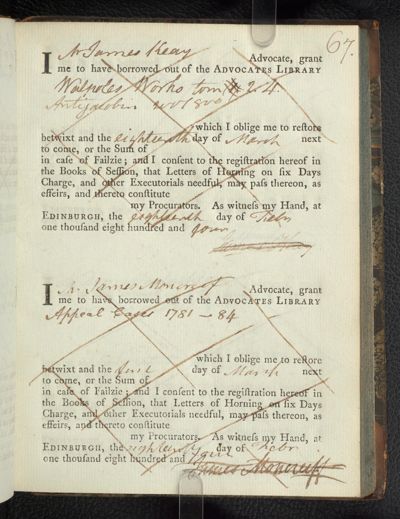 67.
I Mr James Keay Advocate, grant
me to have borrowed out of the ADVOCATES LIBRARY
Walpoles Works tom 2 & 4.
Antijacobin
which I oblige me to reſtore
betwixt and the eighteenth day of March next
to come, or the Sum of
in caſe of Failzie; and I conſent to the regiſtration hereof in
the Books of Seſſion, that Letters of Horning on ſix Days
Charge, and other Executorials needful, may paſs thereon, as
effeirs, and thereto conſtitute
my Procurators. As witneſs my Hand, at
EDINBURGH, the eighteenth day of Febr
one thouſand eight hundred and four
James Keay
I Mr James Moncreiff Advocate, grant
me to have borrowed out of the ADVOCATES LIBRARY
Appeal Cases 1781 - 84
which I oblige me to reſtore
betwixt and the first day of March next
to come, or the Sum of
in caſe of Failzie; and I conſent to the regiſtration hereof in
the Books of Seſſion, that Letters of Horning on ſix Days
Charge, and other Executorials needful, may paſs thereon, as
effeirs, and thereto conſtitute
my Procurators. As witneſs my Hand, at
EDINBURGH, the eighteenth day of Febr
one thouſand eight hundred and four
James Moncreiff